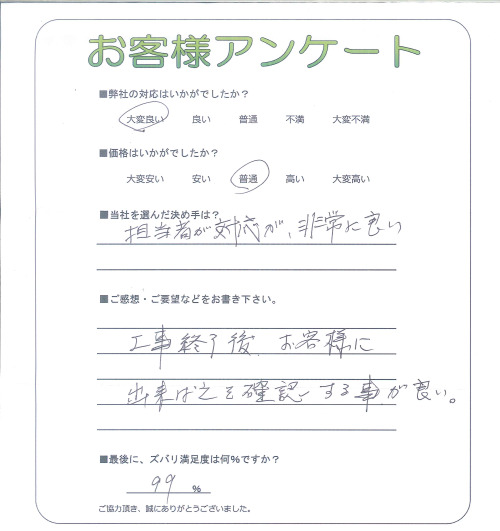 お客様アンケート
■弊社の対応はいかがでしたか？
大変良い 良い 普通 不満 大変不満
■価格はいかがでしたか？
大変安い 安い 普通 高い 大変高い
■当社を選んだ決め手は？
担当者が対応が、非常に良い
■ご感想・ご要望などをお書き下さい。
工事終了後、お客様に
出来ばえを確認する事が良い。
■最後に、ズバリ満足度は何％ですか？
99 %
ご協力頂き、誠にありがとうございました。